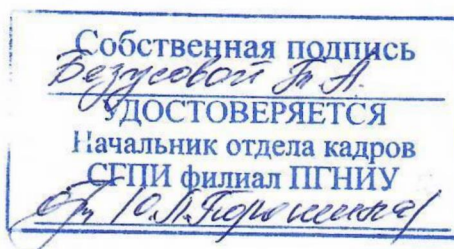 Собственная подпись
Безусовой Т А.
УДОСТОВЕРЯЕТСЯ
Начальник отдела кадров
СГПИ филиал ПГНИУ
Ю.Л.